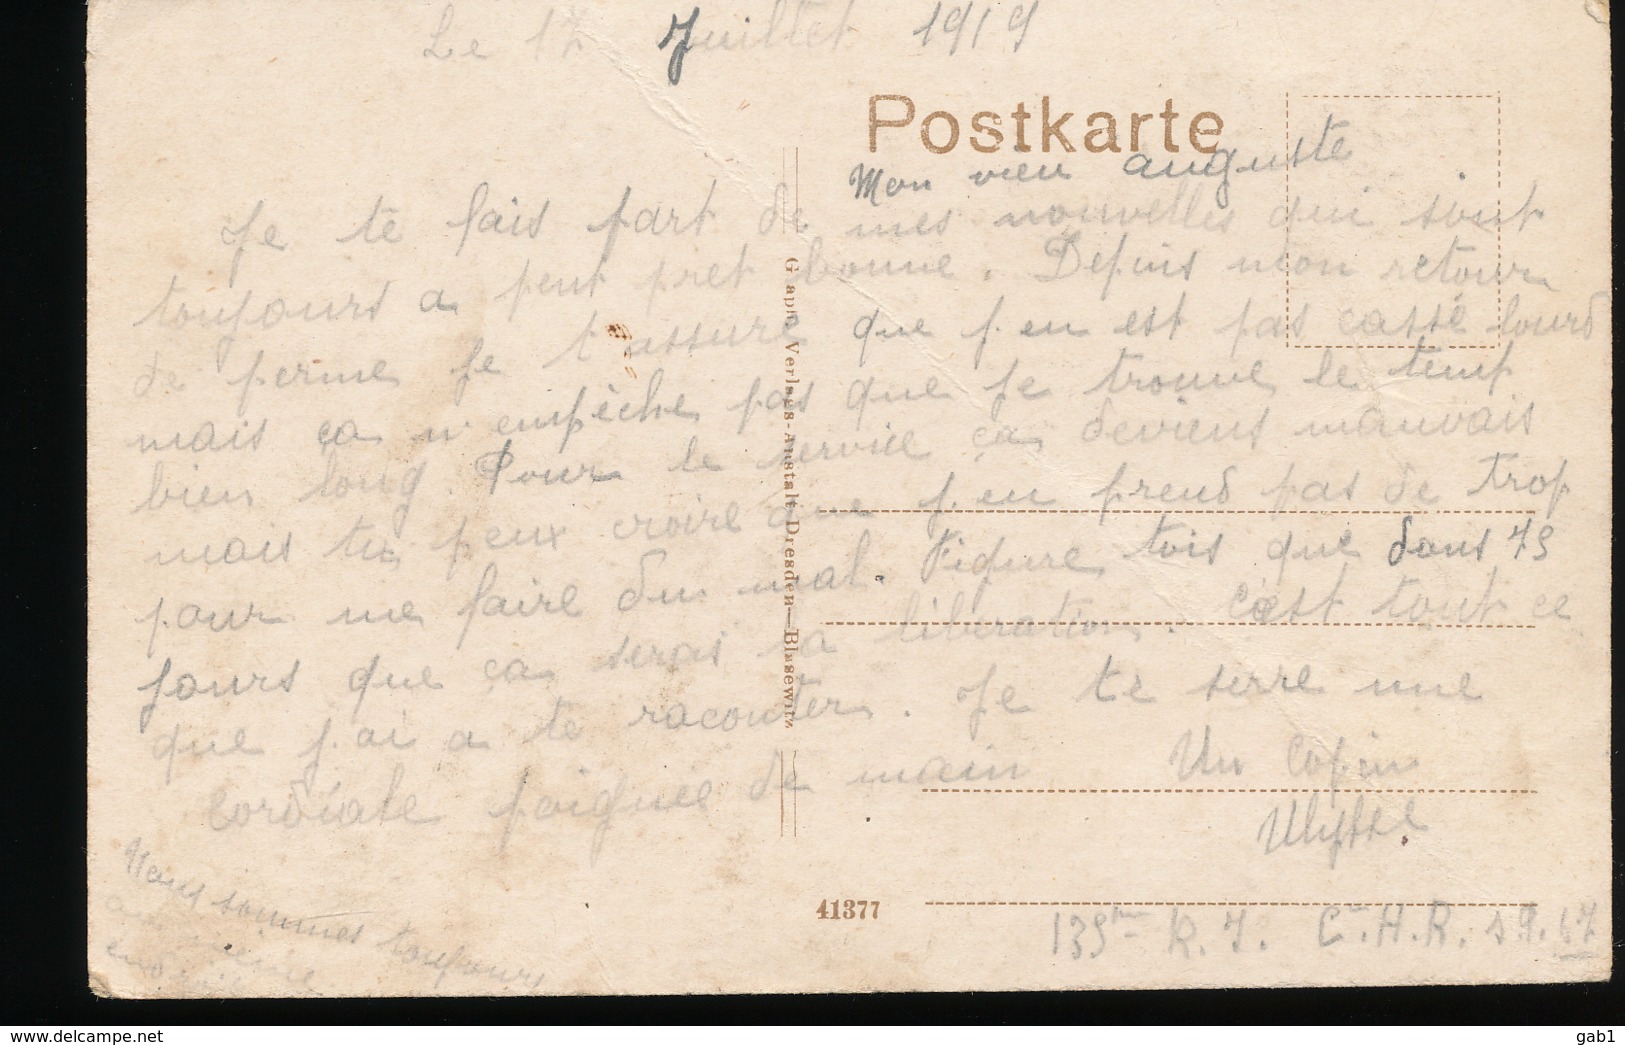 Le 17 Juillet 1919
Postkarte
Mon vieu auguste
Je te fais part de mes nouvelles qui sont
toujours a peut pret bonne. Depuis mon retour
de perme je t'assure que j.en est pas cassé lourd
mais ça n'empèche pas que je trouve le temp
bien long. Pour le service ça deviens mauvais
mais tu peux croire que j.en prend pas de trop
pour me faire du mal. Figure tois que dans 75
jours que ça seras la libération. C'est tout ce
que j.ai a te raconter. Je te serre une
Cordiale poignée de main
Un Copin
Ulysse.
Nous sommes toujours
au meme
endroit
Graph. Verlags-Anstalt Dresden—Blasewitz
41377
135ème R.I. Cie.H.R. S.P.